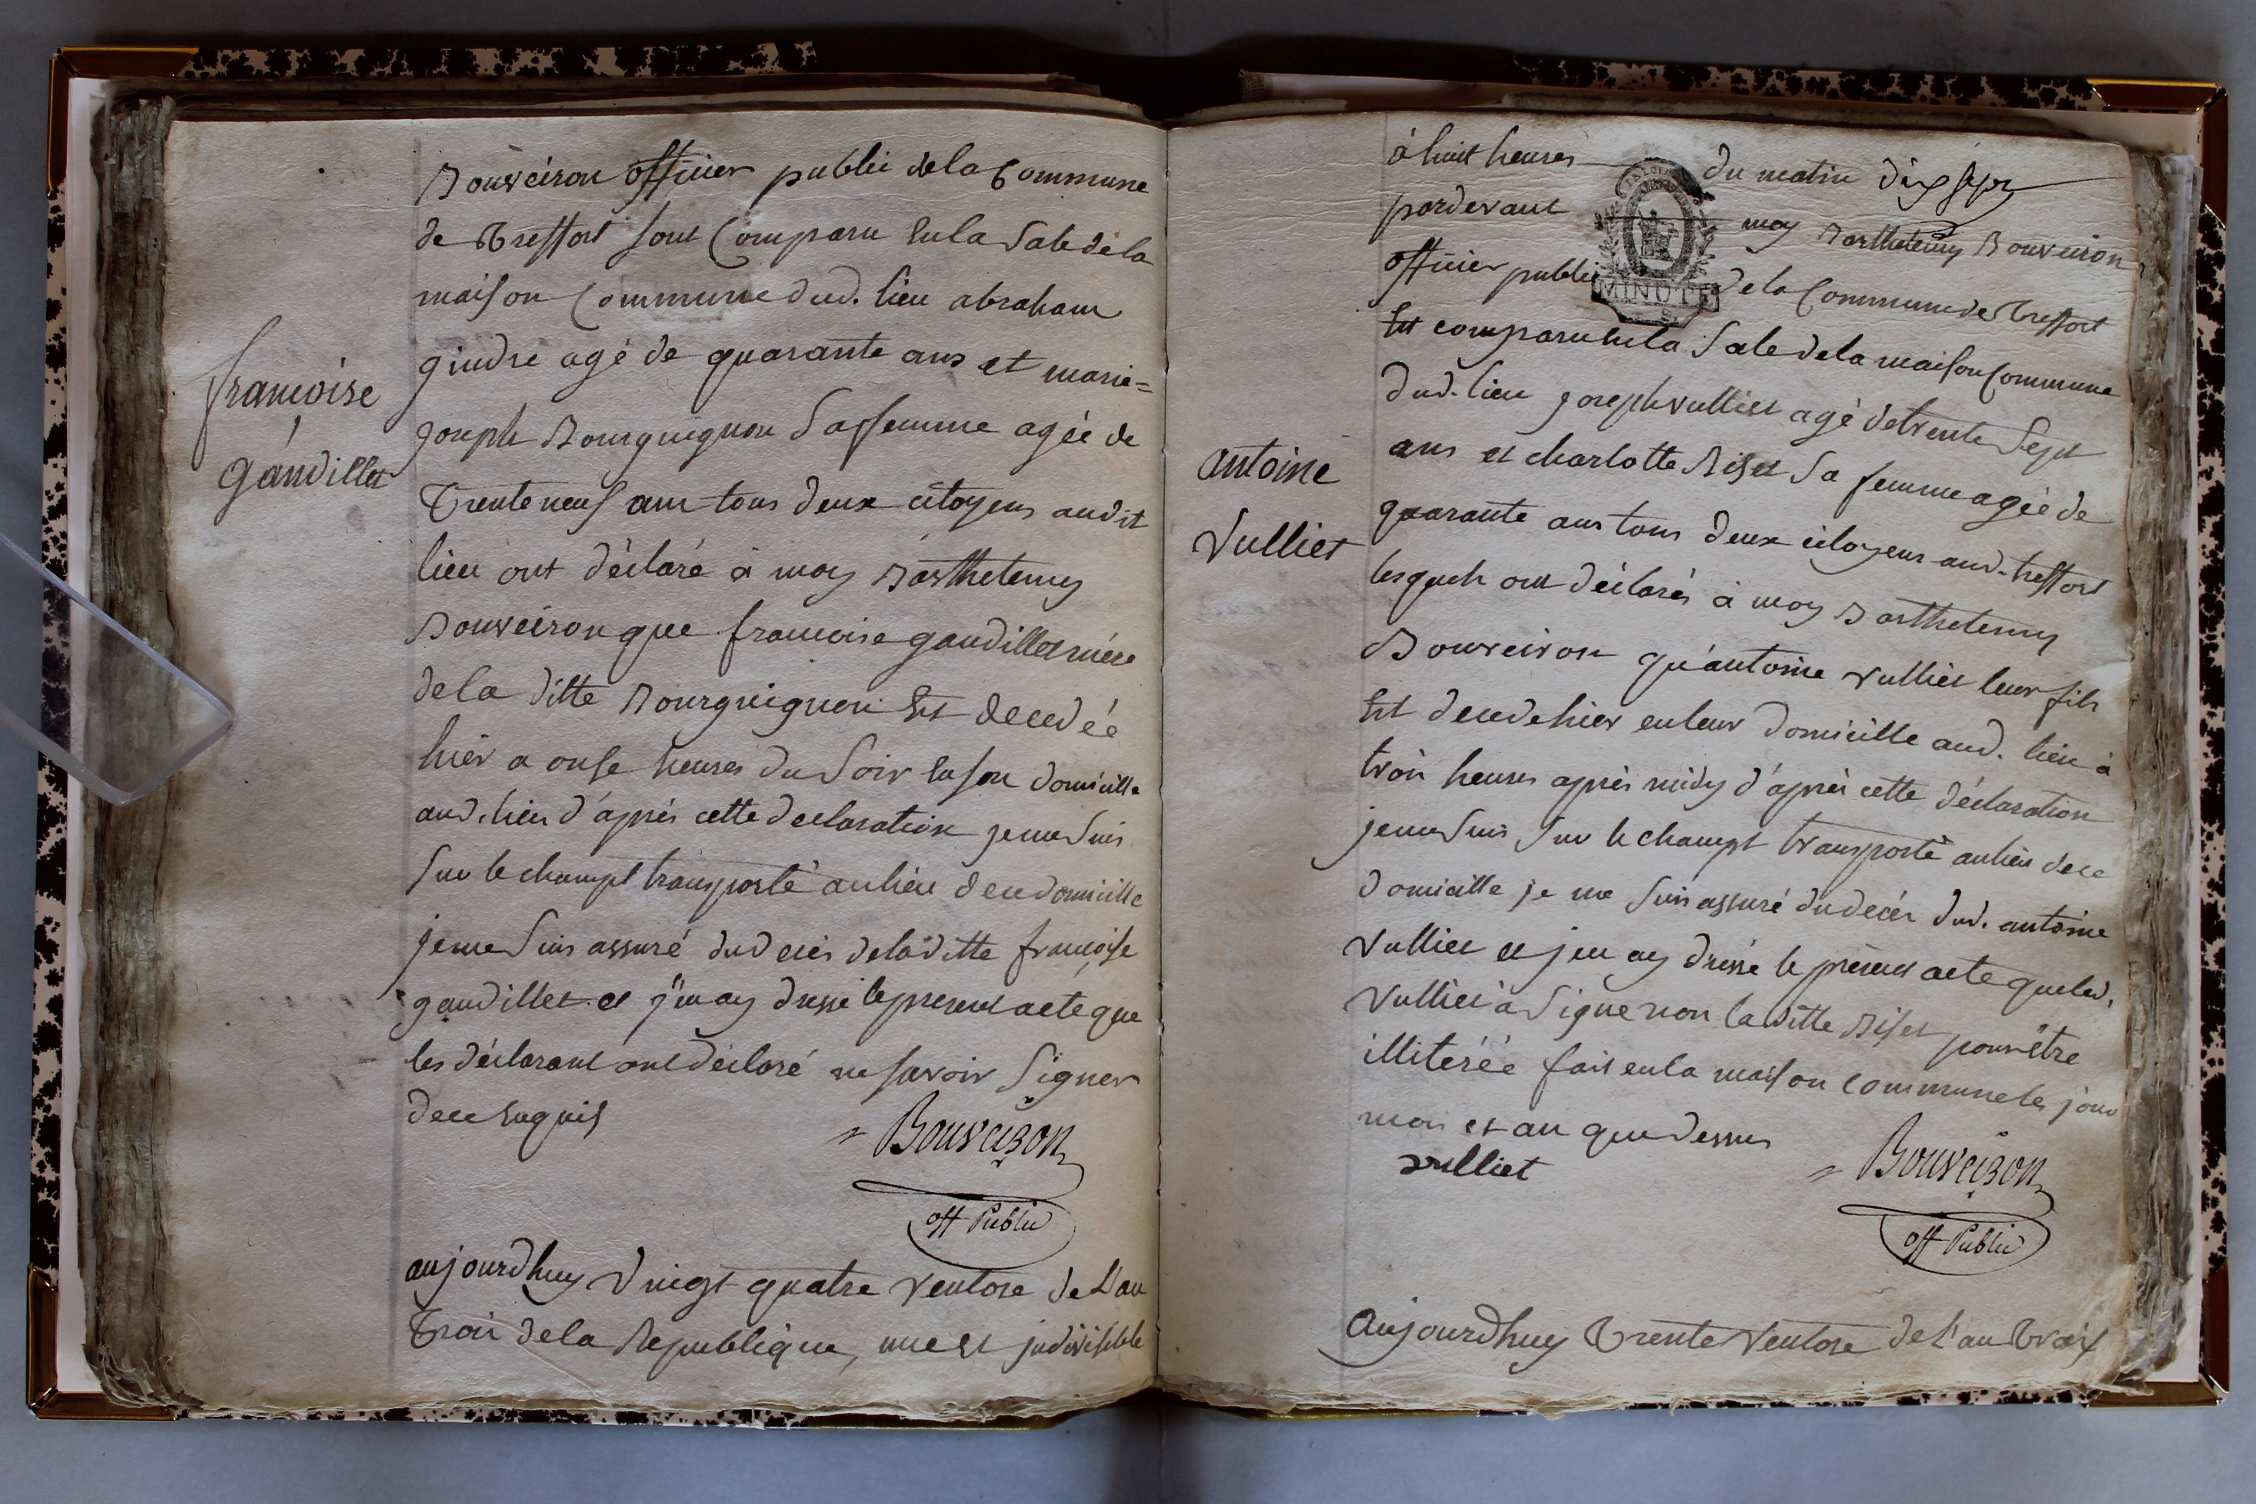 Bouveiron officier public de la Commune
de Treffort sont Comparu en la Sale de la
maison Commune dud. lieu abraham
gindre agé de quarante ans et marie=
joseph Bourguignon Sa femme agée de
Trente neuf ans tous deux citoyens audit
lieu ont déclaré à moy Barthelemy
Bouveiron que francoise gaudillet mére
de la ditte Bourguignon Est decedée
hiér a onse heures du Soir en son domicille
aud. lieu d'aprés cette declaration je me Suis
Sur le champt transporté au lieu de ce domicille
je me Suis assuré du decès de la ditte francoise
gaudillet et j'en ay dressé le present acte que
les déclarant ont déclaré ne savoir Signer
de ce enquis
Bouveiron
off Public
francoise
gaudillet
aujourdhuy vingt quatre ventose de L'an
Trois de la Republique, une et indivisible
à huit heures du matin
pardevant moy Barthelemy Bouveiron
officier public de la Commune de Treffort
MINUTE
Est comparu en la Sale de la maison Commune
dud. lieu joseph vulliet agé de trente Sept
ans et charlotte Riset Sa femme agée de
quarante ans tous deux citoyens aud. treffort
lesquels ont déclarés à moy Barthelemy
Bouveiron qu'antoine vulliet leur fils
Est decede hier en leur domicille aud. lieu à
trois heures après midy d'après cette déclaration
je me Suis Sur le champt transporté au lieu de ce
domicille je me suis assuré du decés dud. antoine
vulliet et j'en ay dressé le présent acte que led.
vulliet à Signe non la ditte Riset pour être
illiterée fait en la maison commune les jour
mois et an que dessus
vulliet
Bouveiron
off Public
antoine
Vulliet
Aujourdhuy Trente Ventose de L'an Trois